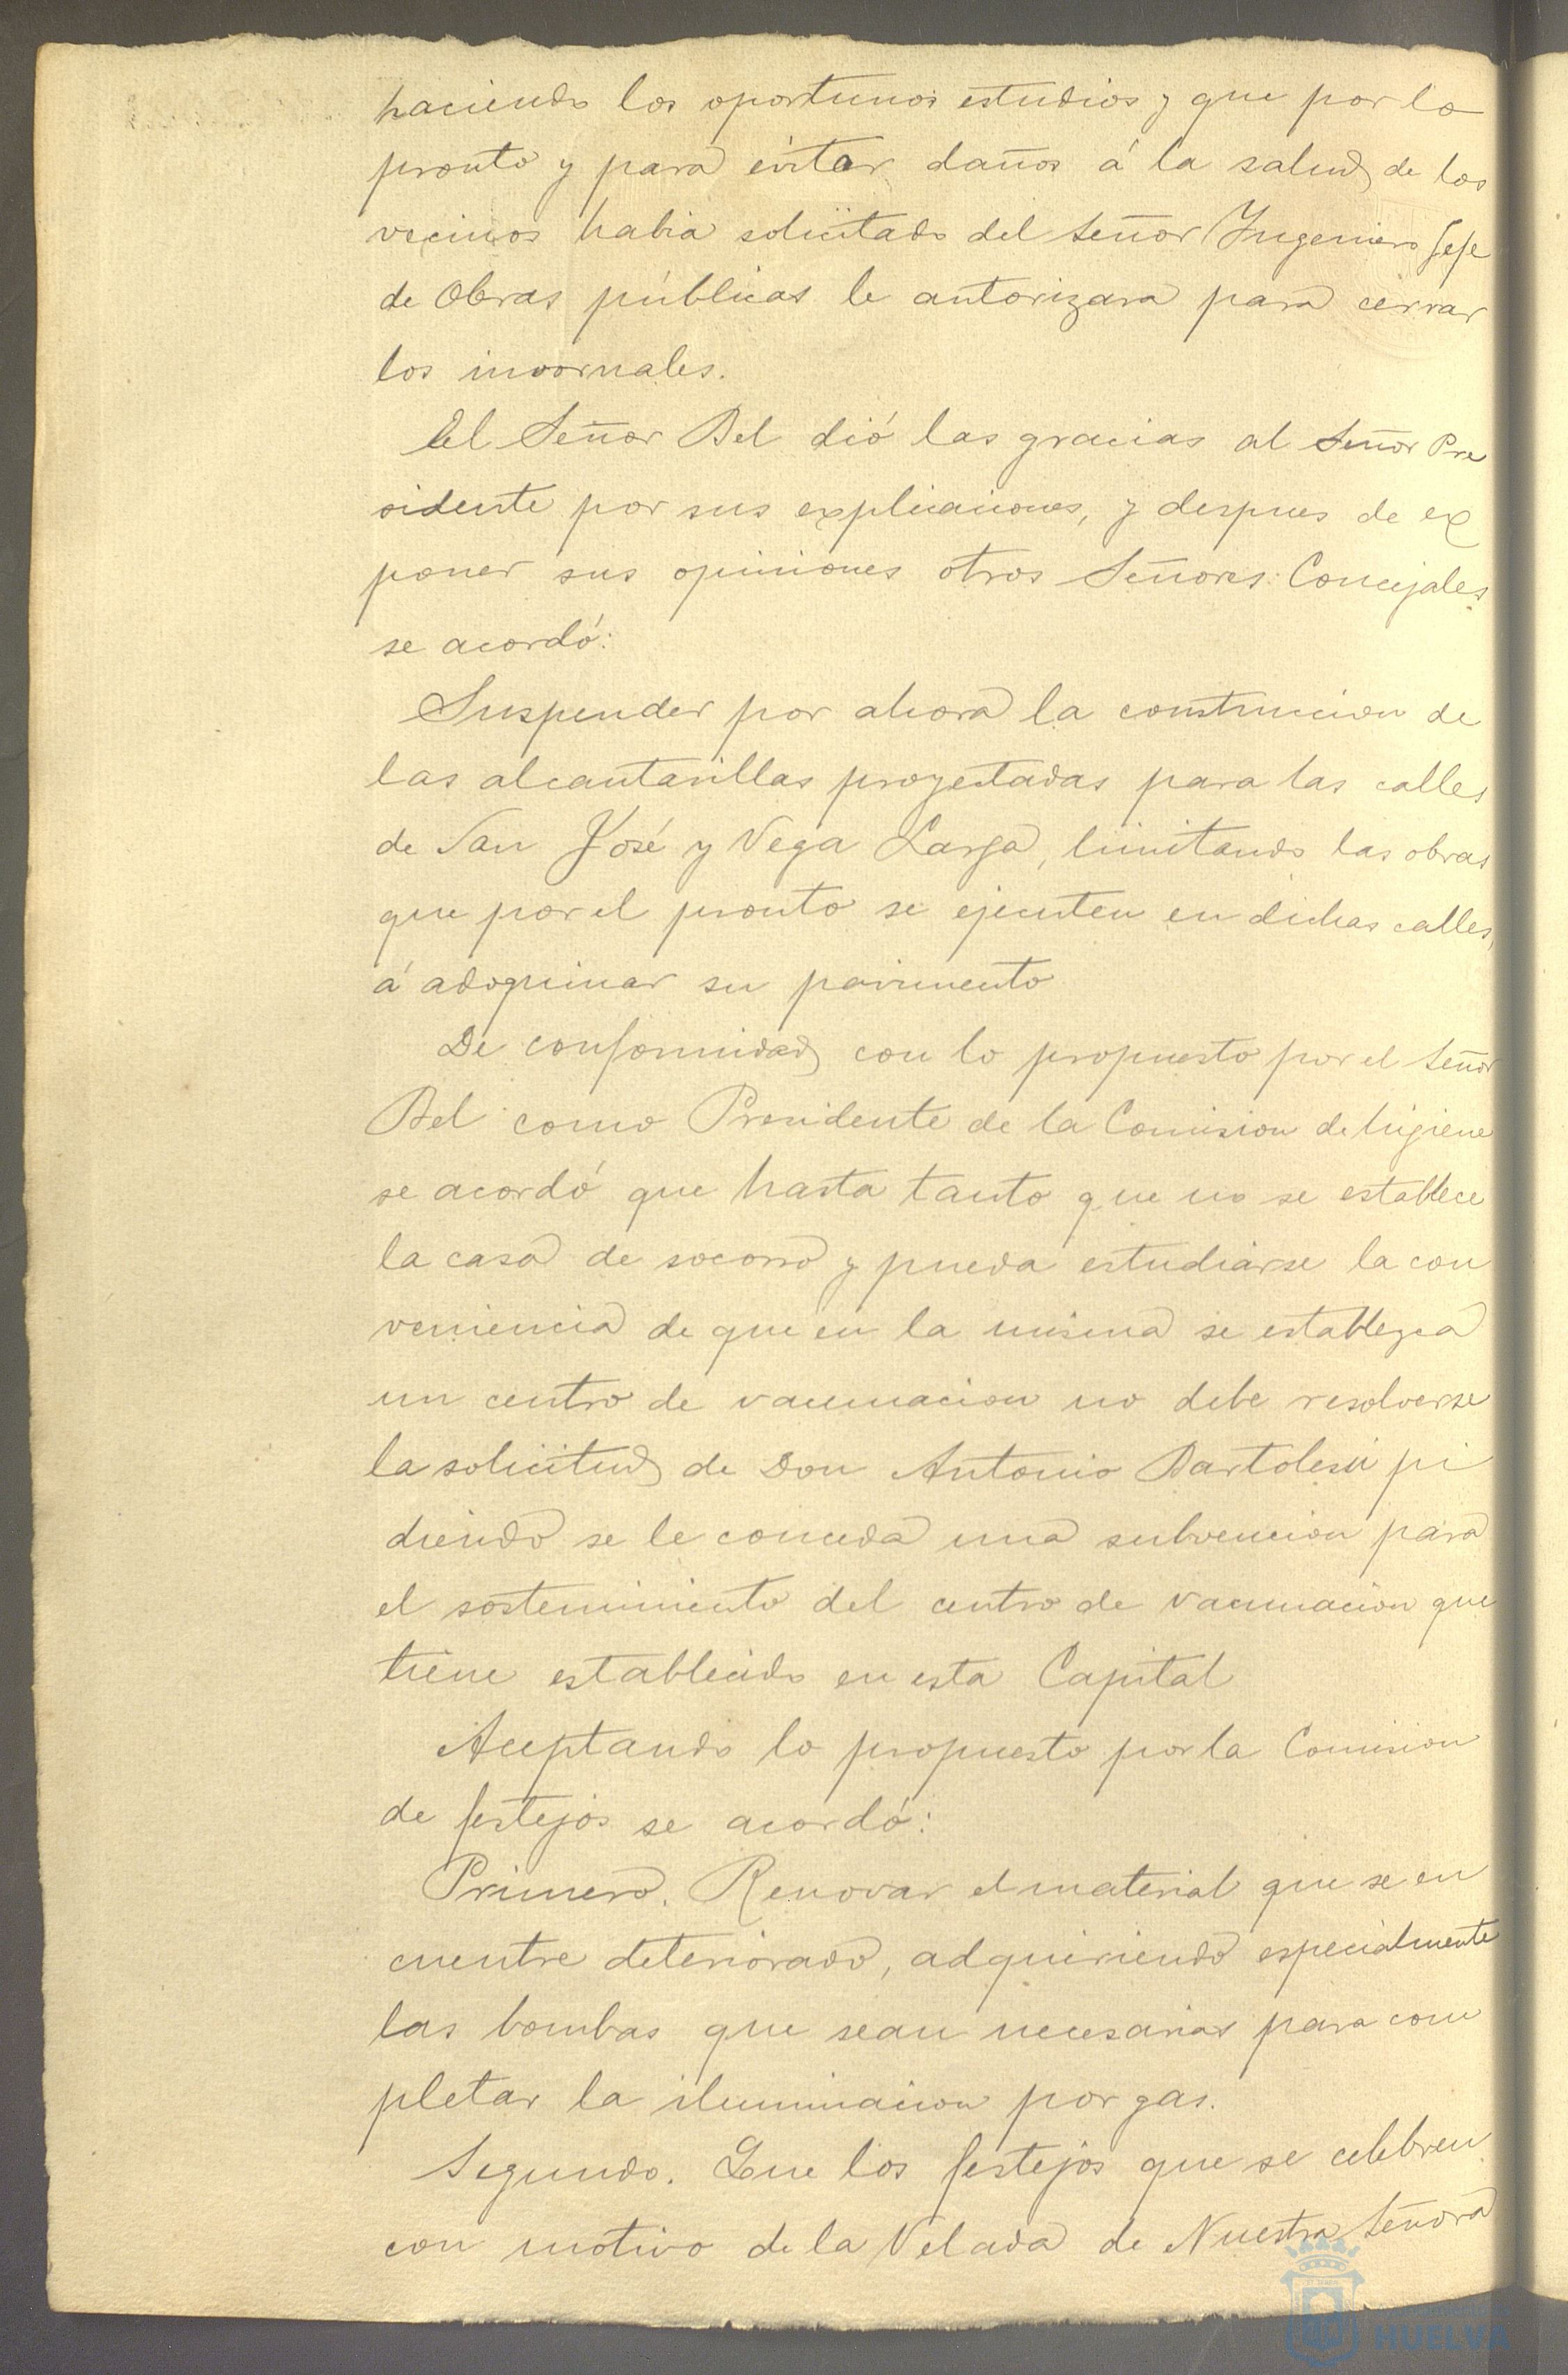 haciendo los oportunos estudios y que por lo
pronto y para evitar daños á la salud de los
vecinos habia solicitado del Señor Ingeniero Jefe
de Obras públicas le autorizara para cerrar
los invornales.
El Señor Bel dió las gracias al Señor Pre
sidente por sus explicaciones, y despues de ex
poner sus opiniones otros Señores Concejales
se acordó:
Suspender por ahora la construccion de
las alcantarillas proyectadas para las calles
de San José y Vega Larga, limitando las obras
que por el pronto se ejecuten en dichas calles,
á adoquinar su pavimento
De conformidad con lo propuesto por el Señor
Bel como Presidente de la Comision de higiene
se acordó que hasta tanto que no se establece
la casa de socorro y pueda estudiarse la con
veniencia de que en la misma se establezca
un centro de vacunacion no debe resolverse
la solicitud de Don Antonio Bartolesi pi
diendo se le conceda una subvencion para
el sostenimiento del centro de vacunacion que
tiene establecido en esta Capital
Aceptando lo propuesto por la Comision
de festejos se acordó:
Primero. Renovar el material que se en
cuentre deteriorado, adquiriendo especialmente
las bombas que sean necesarias para com
pletar la iluminacion por gas.
Segundo. Que los festejos que se celebren
con motivo de la Velada de Nuestra Señora
HUELVA